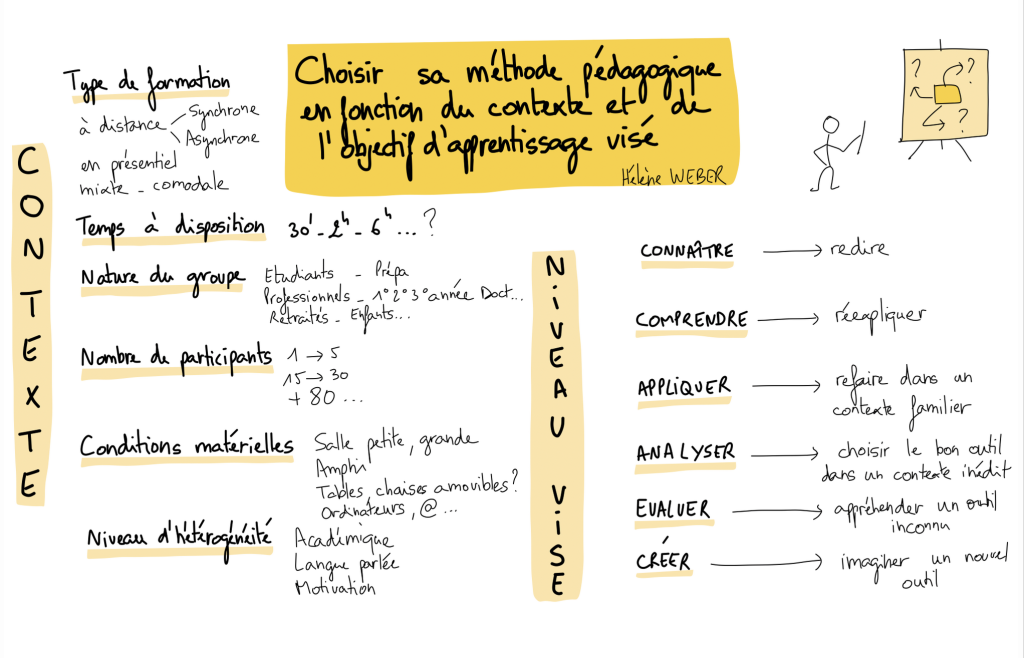 Choisir sa méthode pédagogique
en fonction du contexte et de
l'objectif d'apprentissage visé
Hélène WEBER
? ?
?
CONTEXTE
Type de formation
à distance
Synchrone
Asynchrone
en présentiel
mixte - comodale
Temps à disposition 30' - 2h - 6h ... ?
Nature du groupe
Etudiants - Prépa
Professionnels - 1° 2° 3° année Doct...
Retraités - Enfants...
Nombre de participants
1 → 5
15 → 30
+ 80 ...
Conditions matérielles
Salle petite, grande
Amphi
Tables, chaises amovibles?
Ordinateurs, @ ...
Niveau d'hétérogénéité
Académique
Langue parlée
Motivation
NiVEAU ViSE
CONNAÎTRE → redire
COMPRENDRE → réexpliquer
APPLIQUER → refaire dans un
contexte familier
ANALYSER → choisir le bon outil
dans un contexte inédit
EVALUER → appréhender un outil
inconnu
CRÉER → imaginer un nouvel
outil